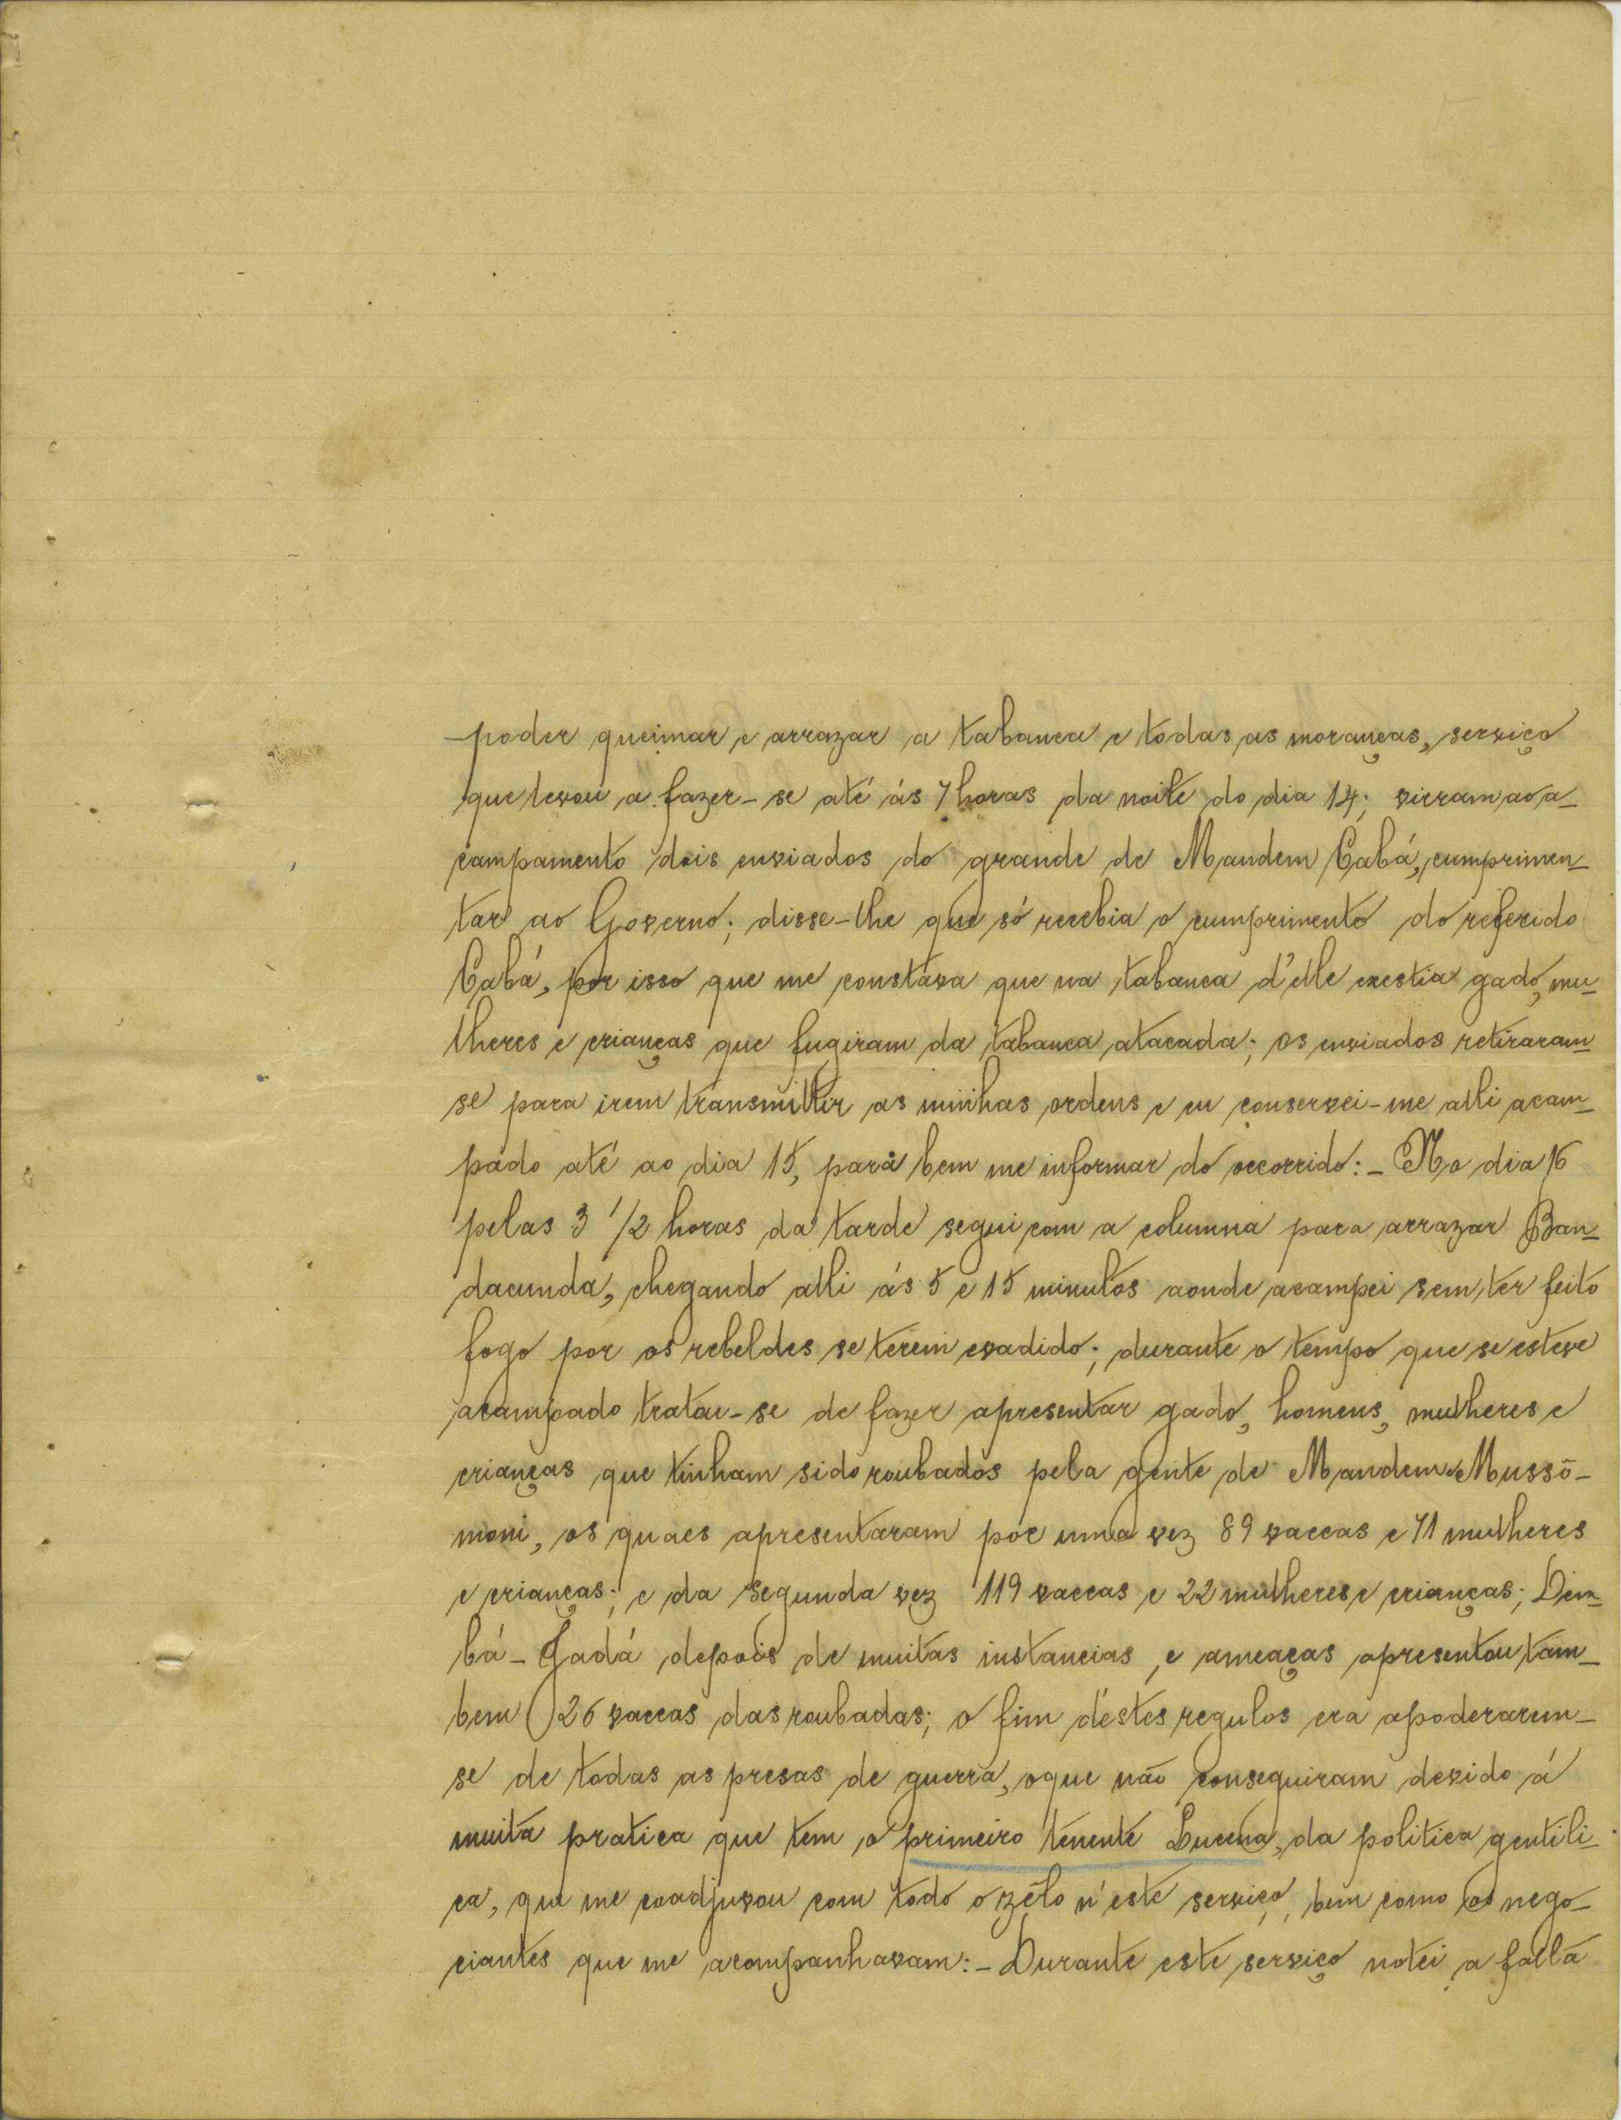 poder queimar e arrazar a tabanca e todas as moranças, serviço
que levou a fazer-se até ás 7 horas da noite do dia 14; vieram ao a-
campamento dois enviados do grande de Mandem Cabá, cumprimen-
tar ao Governo; disse-lhe que só recebia o cumprimento do referido
Cabá, por isso que me constava que na tabanca d'elle exestia gado, mu-
lheres e crianças que fugiram da tabanca atacada; os enviados retiraram-
se para irem transmittir as minhas ordens e eu conservei-me alli acam-
pado até ao dia 15, para bem me informar do occorrido:- No dia 16
pelas 3 1/2 horas da tarde segui com a columna para arrazar Ban-
dacunda, chegando alli ás 5 e 15 minutos aonde acampei sem ter feito
fogo por os rebeldes se terem evadido; durante o tempo que se esteve
acampado tratou-se de fazer apresentar gado, homens, mulheres e
crianças que tinham sido roubados pela gente de Mandem e Mussó-
moni, os quaes apresentaram por uma vez 89 vaccas e 71 mulheres
e crianças; e da segunda vez 119 vaccas e 22 mulheres e crianças; Dem-
bá-Jadá depois de muitas instancias, e ameaças apresentou tam-
bem 26 vaccas das roubadas; o fim d'estes regulos era apoderarem-
se de todas as presas de guerra, o que não conseguiram devido á
muita pratica que tem o primeiro tenente Lucena, da politica gentili-
ca, que me coadjuvou com todo o zêlo n'este serviço, bem como os nego-
ciantes que me acompanhavam:- Durante este serviço notei a falta